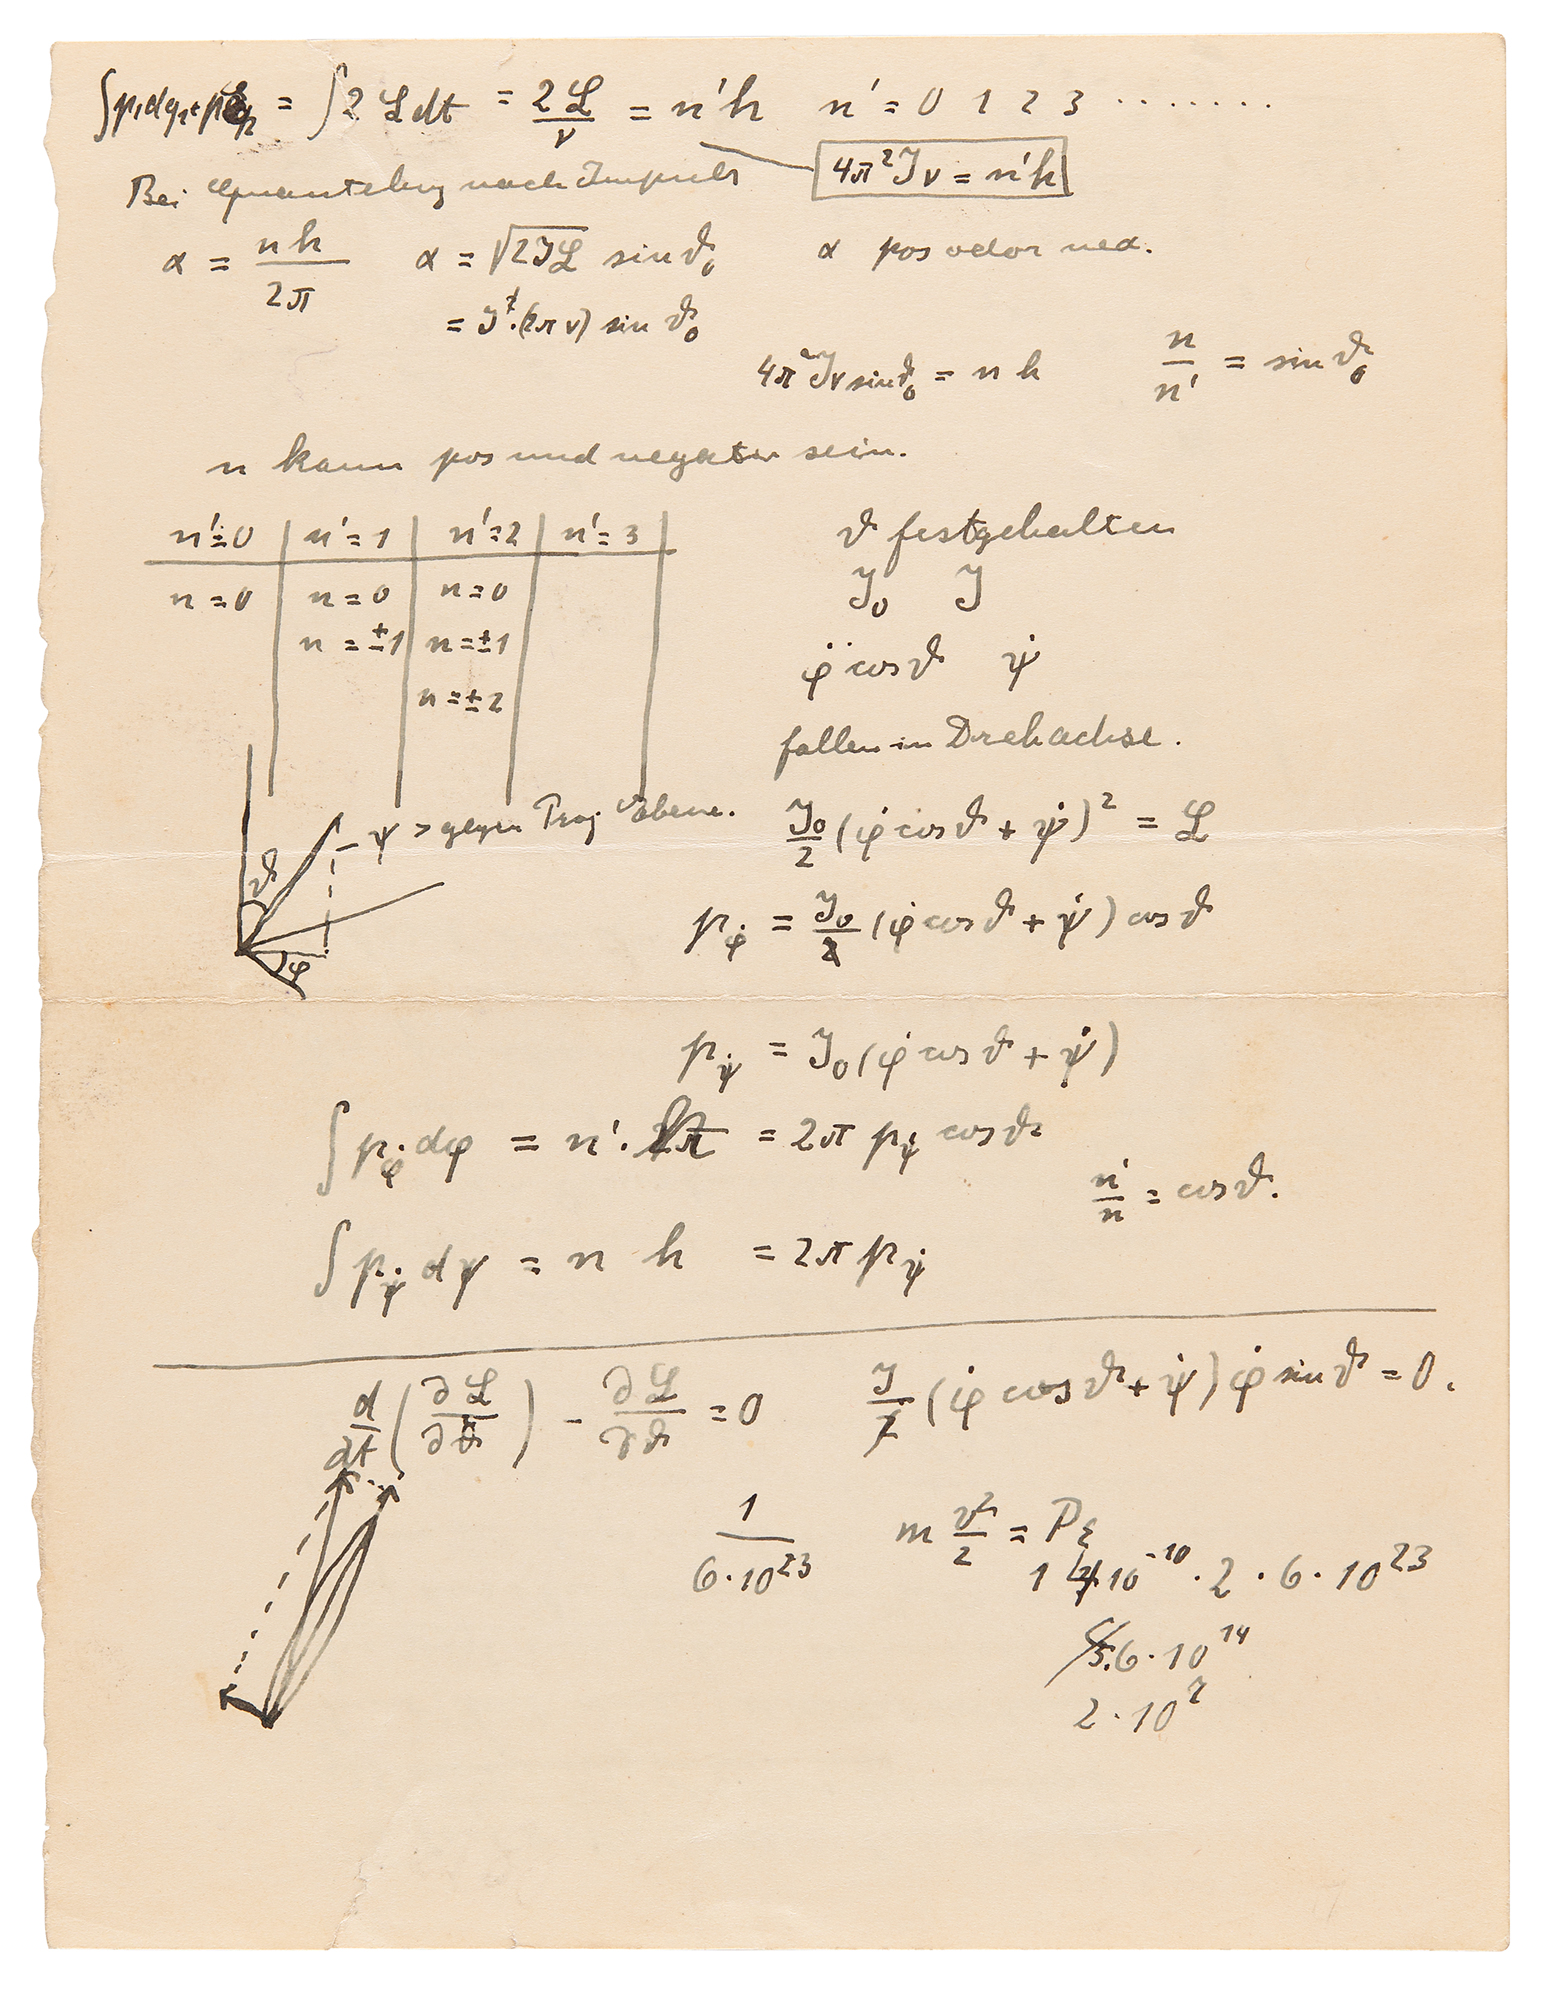 ∫p₁dq₁+p₂ = ∫2 L dt = 2L/ν = n'h n' = 0 1 2 3 ·······
4π²Jν = n'h
Bei Quantelung nach Impuls
α = nh/2π α = √(2JL) sin ϑ₀ α pos oder neg.
= J·(2πν) sin ϑ₀
4π²Jν sin ϑ₀ = n h n/n' = sin ϑ₀
n kann pos und negativ sein.
n'=0 n'=1 n'=2 n'=3
n=0 n=0 n=0
n=±1 n=±1
n=±2
ϑ festgehalten
J₀ J
φ̇ cos ϑ ψ̇
fallen in Drehachse.
ϑ ψ > gegen Proj Ebene.
φ
J₀/2 (φ̇ cos ϑ + ψ̇)² = L
p_φ̇ = J₀ (φ̇ cos ϑ + ψ̇) cos ϑ
p_ψ̇ = J₀(φ̇ cos ϑ + ψ̇)
∫p_φ̇ dφ = n'· = 2π p_ψ̇ cos ϑ
n'/n = cos ϑ.
∫p_ψ̇ dψ = n h = 2π p_ψ̇
d/dt (∂L/∂ϑ̇) - ∂L/∂ϑ = 0 J (φ̇ cos ϑ + ψ̇) φ̇ sin ϑ = 0.
1/6·10²³ m v²/2 = Pε
10⁻¹⁰ · 2 · 6 · 10²³
6·10¹⁴
2·10⁷